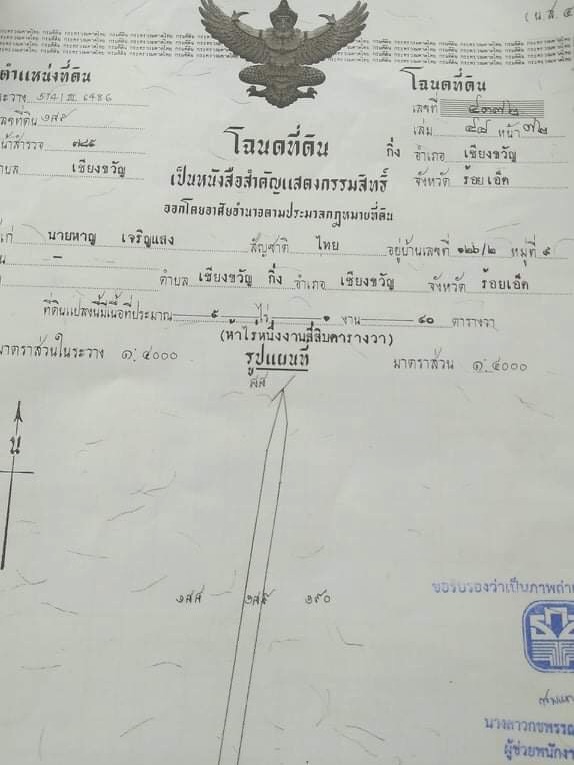 (น.ส. ๔
ตำแหน่งที่ดิน
ระวาง 5741 III 6486
เลขที่ดิน ๑๘๙
หน้าสำรวจ ๓๘๕
ตำบล เชียงขวัญ
โฉนดที่ดิน
เลขที่ ๔๓๗๒
เล่ม ๔๔ หน้า ๗๒
กิ่ง อำเภอ เชียงขวัญ
จังหวัด ร้อยเอ็ด
โฉนดที่ดิน
เป็นหนังสือสำคัญแสดงกรรมสิทธิ์
ออกโดยอาศัยอำนาจตามประมวลกฎหมายที่ดิน
นายหาญ เจริญแสง สัญชาติ ไทย อยู่บ้านเลขที่ ๑๒๖/๒ หมู่ที่ ๙
– ตำบล เชียงขวัญ กิ่ง อำเภอ เชียงขวัญ จังหวัด ร้อยเอ็ด
ที่ดินแปลงนี้มีเนื้อที่ประมาณ ๕ ไร่ ๑ งาน ๔๐ ตารางวา
(ห้าไร่หนึ่งงานสี่สิบตารางวา)
มาตราส่วนในระวาง ๑:๔๐๐๐ รูปแผนที่ มาตราส่วน ๑:๔๐๐๐
น
๑๘๘ ๑๘๙ ๑๙๐
ขอรับรองว่าเป็นภาพถ่าย
ผู้ช่วยพนักงา